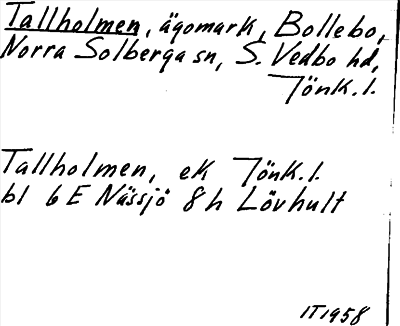 Tallholmen, ägomark, Bollebo,
Norra Solberga sn, S. Vedbo hd,
Jönk.l.
Tallholmen, ek Jönk.l.
bl 6E Nässjö 8h Lövhult
IT1958